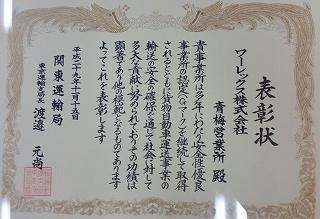 表彰状
ワーレックス株式会社
青梅営業所 殿
貴事業所は多年にわたり安全性優良
事業所の認定(Gマーク)を継続して取得
されるとともに貨物自動車運送事業の
輸送の安全の確保を通して社会に対して
多大な貢献に努められておりその功績は
顕著であり他の模範となるものであります
よってこれを表彰します
平成二十九年十一月十五日
関東運輸局
東京運輸支局長 渡邉 元尚